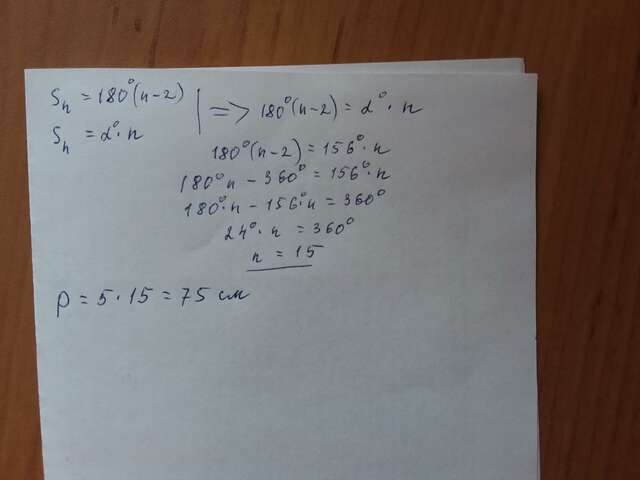 Sn = 180°(n-2)
Sn = α°·n
=> 180°(n-2) = α°·n
180°(n-2) = 156°·n
180°n - 360° = 156°·n
180°·n - 156°·n = 360°
24°·n = 360°
n = 15
P = 5·15 = 75 см